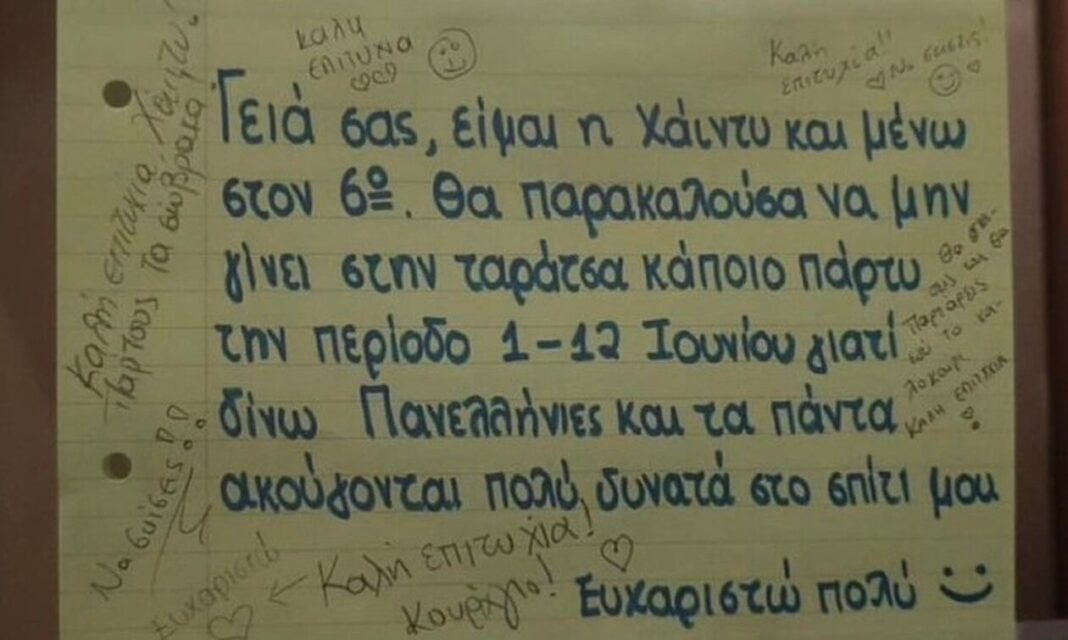 Καλη
επιτυχια
Καλη
επιτυχία!! Να σκίσεις!
Γειά σας, είμαι η Χάιντυ και μένω
στον 6º. Θα παρακαλούσα να μην
γίνει στην ταράτσα κάποιο πάρτυ
την περίοδο 1-12 Ιουνίου γιατί
δίνω Πανελλήνιες και τα πάντα
ακούγονται πολύ δυνατά στο σπίτι μου
Ευχαριστώ πολύ :)
Καλή επιτυχία Χάιντυ!
Πάρτους τα σώβρακα
Να σκίσεις!!
Ευχαριστώ
← Καλή επιτυχία!
Κουράγιο!
Θα
και θα
παρτάρεις
το κα-
λοκαίρι
ΚΑΛΗ ΕΠΙΤΥΧΙΑ